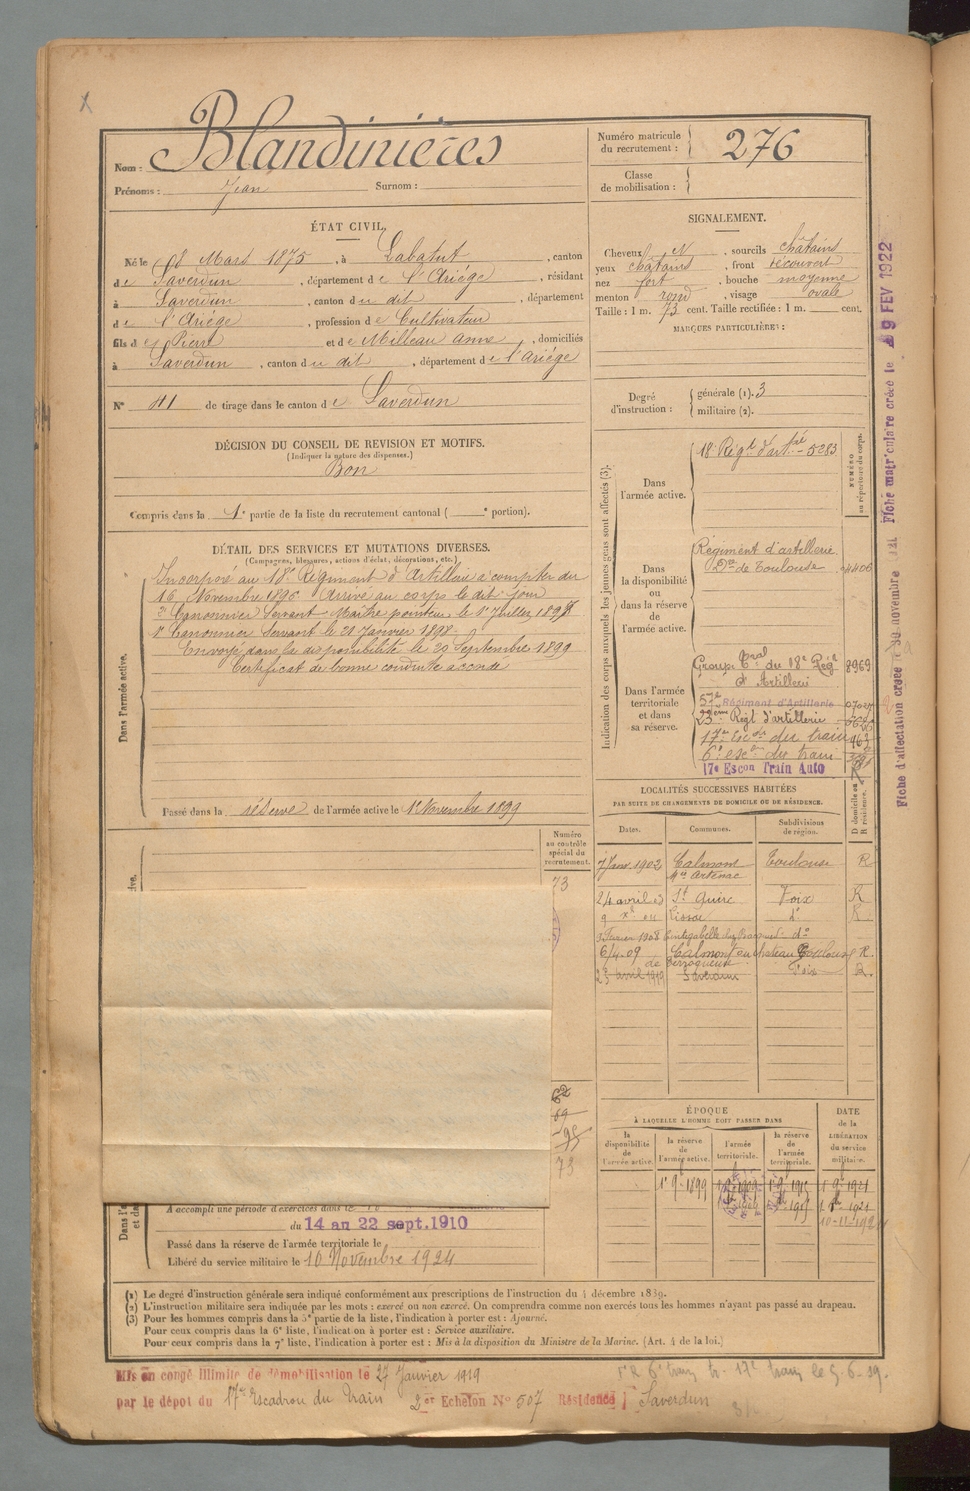 Nom : Blandinières
Prénoms : Jean Surnom :
Numéro matricule du recrutement : 276
Classe de mobilisation :
ÉTAT CIVIL.
Né le 8 Mars 1875, à Labatut, canton
de Saverdun, département de l'Ariége, résidant
à Saverdun, canton du dit, département
de l'Ariége, profession de Cultivateur
fils de Pierre et de Milleau Anne, domiciliés
à Saverdun, canton du dit, département de l'Ariége
N° 41 de tirage dans le canton de Saverdun
DÉCISION DU CONSEIL DE REVISION ET MOTIFS.
(Indiquer la nature des dispenses.)
Bon
Compris dans la 1e partie de la liste du recrutement cantonal ( e portion).
DÉTAIL DES SERVICES ET MUTATIONS DIVERSES.
(Campagnes, blessures, actions d'éclat, décorations, etc.)
Dans l'armée active.
Incorporé au 18e Régiment d'Artillerie à compter du
16 Novembre 1896 Arrivé au corps le dit jour
2e Canonnier Servant Maître pointeur le 1er Juillet 1897
1er Canonnier Servant le 21 Janvier 1898
Envoyé dans la disponibilité le 20 Septembre 1899
Certificat de bonne conduite accordé
Passé dans la réserve de l'armée active le 1er Novembre 1899
Numéro au contrôle spécial du recrutement.
73
62
69
73
A accompli une période d'exercices dans le
du 14 au 22 sept. 1910
Passé dans la réserve de l'armée territoriale le
Libéré du service militaire le 10 Novembre 1924
SIGNALEMENT.
Cheveux N, sourcils châtains
yeux châtains, front découvert
nez fort, bouche moyenne
menton rond, visage ovale
Taille : 1 m. 73 cent. Taille rectifiée : 1 m. cent.
MARQUES PARTICULIÈRES :
Degré d'instruction : générale (1). 3
militaire (2).
Indication des corps auxquels les jeunes gens sont affectés (3).
NUMÉRO au répertoire du corps.
Dans l'armée active.
18e Régt d'artrie 5283
Dans la disponibilité ou dans la réserve de l'armée active.
Régiment d'artillerie
Don de Toulouse 4406
Dans l'armée territoriale et dans sa réserve.
Groupe Tral du 18e Régt 8969
d'Artillerie
57e Régiment d'Artillerie
23ème Régt d'artillerie
17e Escon du train
6e escon du train
17e Escon Train Auto
LOCALITÉS SUCCESSIVES HABITÉES
PAR SUITE DE CHANGEMENTS DE DOMICILE OU DE RÉSIDENCE.
Dates. Communes. Subdivisions de région. D domicile ou R résidence.
7 Janv. 1902 Calmont Toulouse R
24 avril 03 St Quirc Foix R
9 xbre 04 Lissac do R
3 Février 1908 do
6/4-09 Calmont au chateau Toulouse R.
de Terraqueuse
23 avril 1919 Saverdun Foix R.
ÉPOQUE
À LAQUELLE L'HOMME DOIT PASSER DANS
DATE de la LIBÉRATION du service militaire.
la disponibilité de l'armée active.
la réserve de l'armée active.
l'armée territoriale.
la réserve de l'armée territoriale.
1er 9bre 1899
10-11-192
(1) Le degré d'instruction générale sera indiqué conformément aux prescriptions de l'instruction du 4 décembre 1889.
(2) L'instruction militaire sera indiquée par les mots : exercé ou non exercé. On comprendra comme non exercés tous les hommes n'ayant pas passé au drapeau.
(3) Pour les hommes compris dans la 5e partie de la liste, l'indication à porter est : Ajourné.
Pour ceux compris dans la 6e liste, l'indication à porter est : Service auxiliaire.
Pour ceux compris dans la 7e liste, l'indication à porter est : Mis à la disposition du Ministre de la Marine. (Art. 4 de la loi.)
Mis en congé illimité de démobilisation le 27 Janvier 1919
par le dépôt du 17e Escadron du Train 2er Echelon N° 507 Résidence Saverdun
Fiche matriculaire créée le 9 FEV 1922
Fiche d'affectation créée le 30 novembre